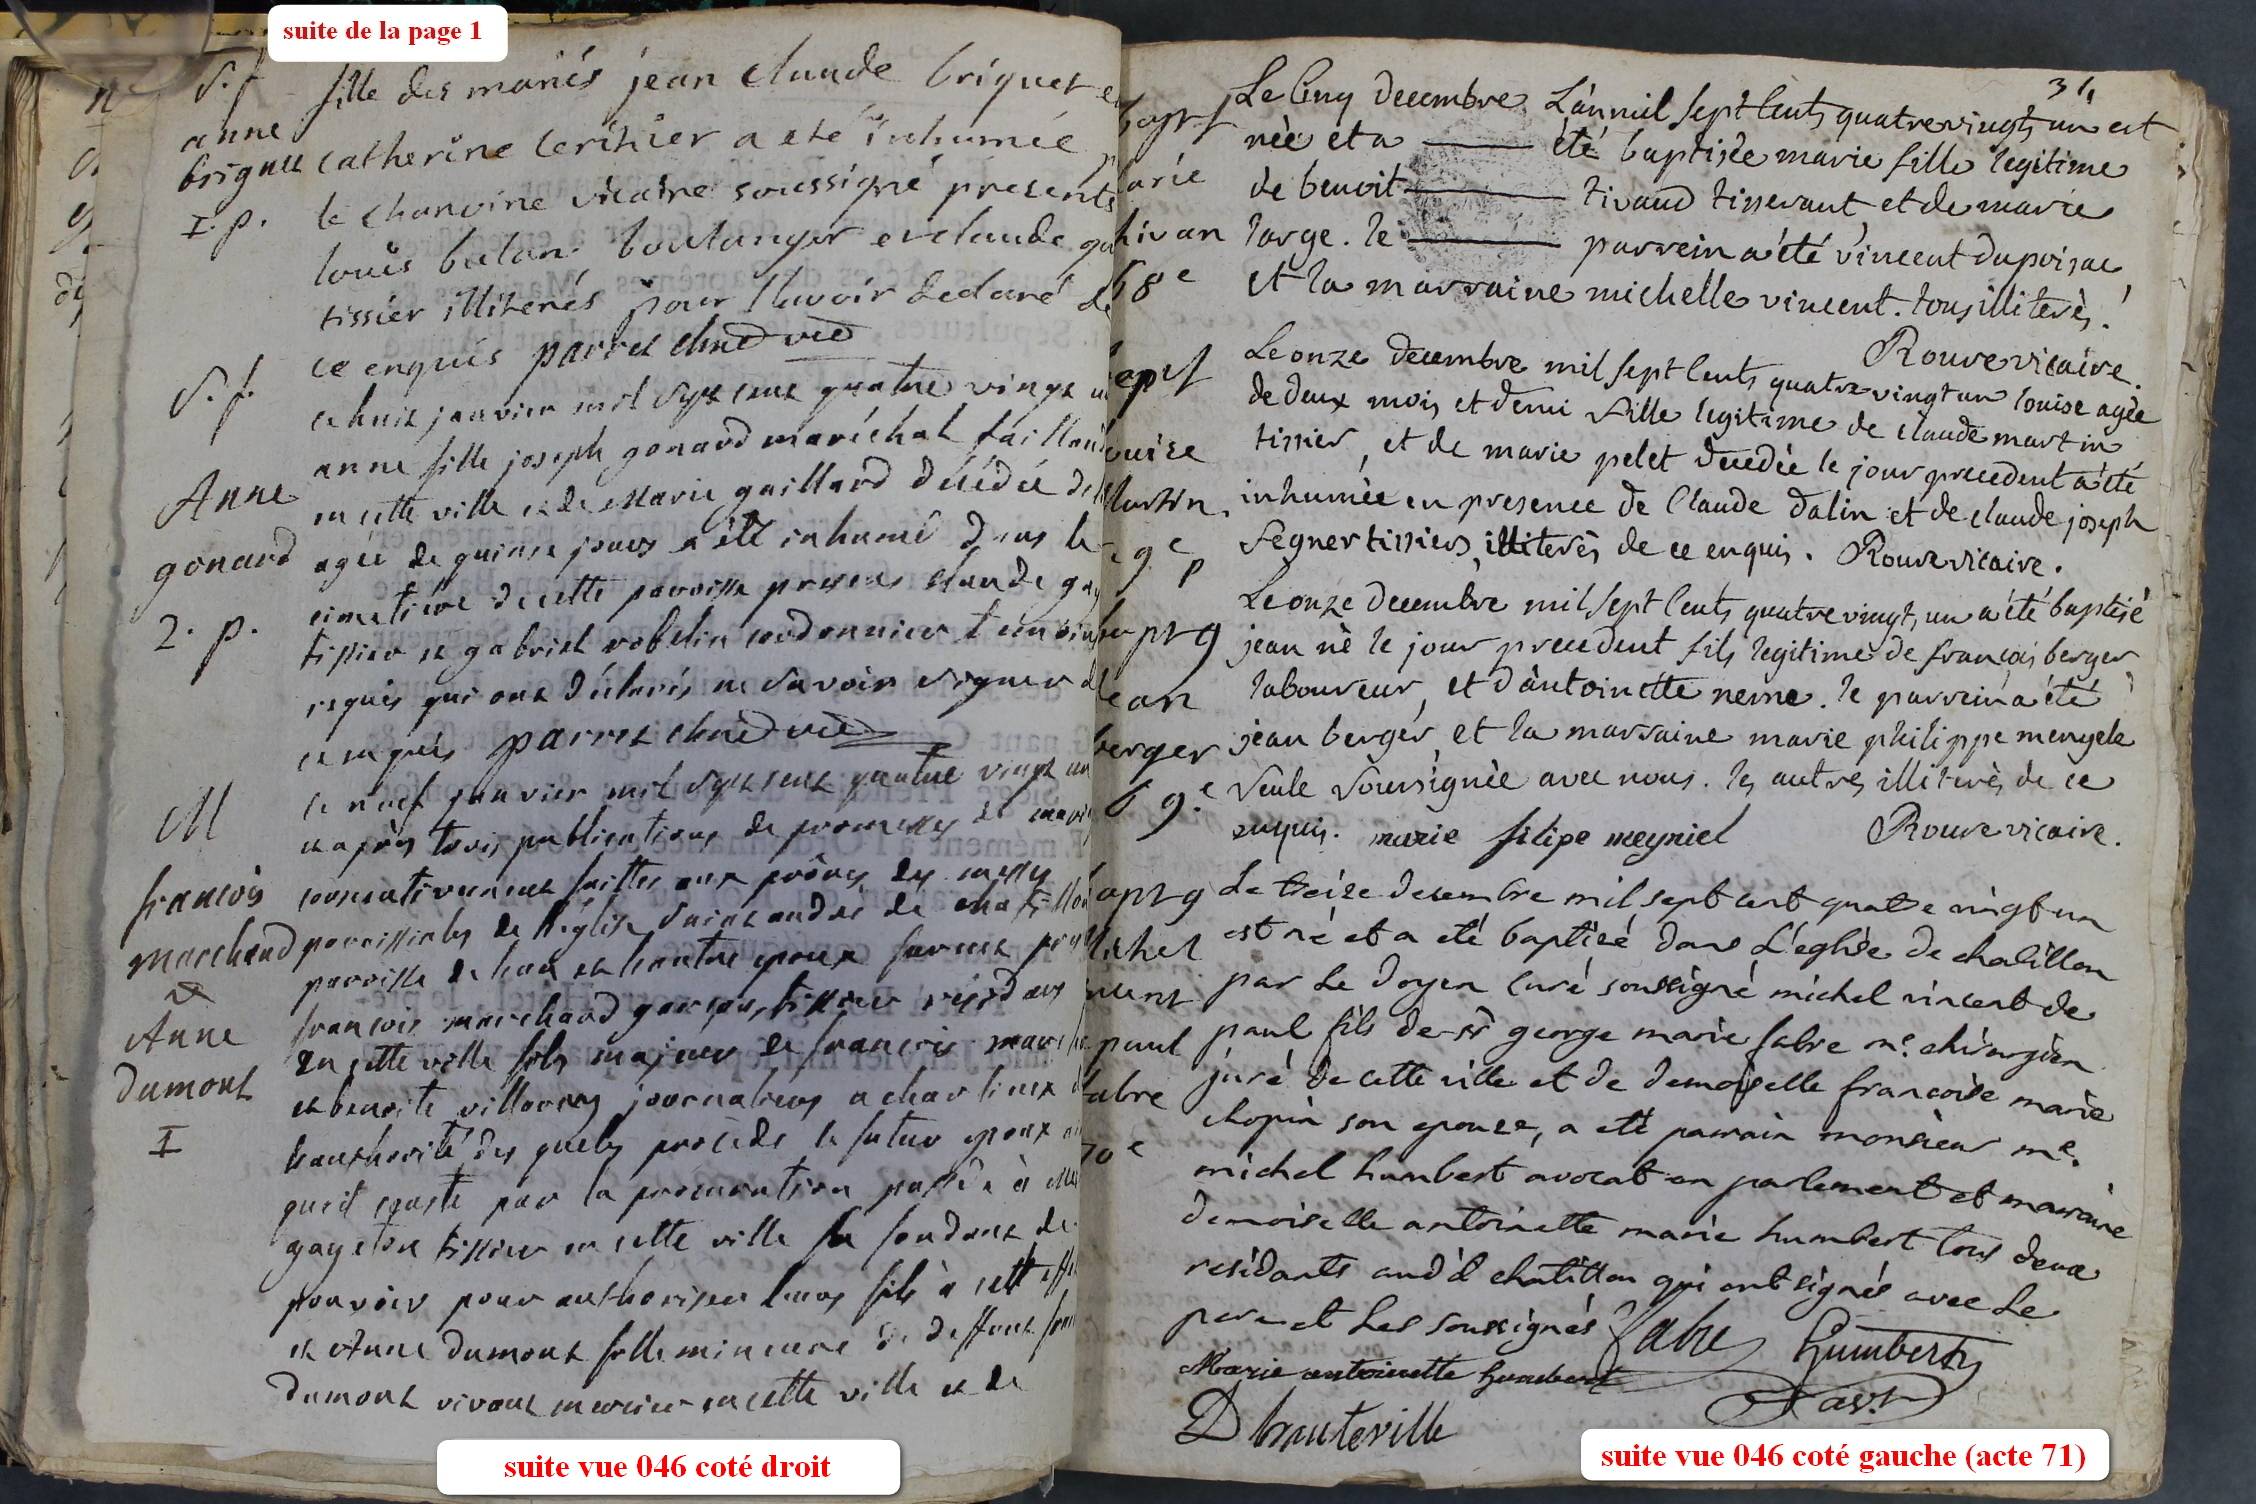 suite de la page 1
S. f.
anne
brignet
I. p.
fille des mariés jean claude briquet et
catherine lerihier a eté inhumée
le chanoine vicaire soussigné presents
louis balan boulanger et claude
tissier illiterés pour l'avoir declaré de
ce enquis parret chne vic
S. f.
Anne
gonard
2. p.
le huit janvier mil sept cent quatre vingt
anne fille joseph gonard maréchal taillandier
en cette ville et de Marie gaillard décédée
agée de quinze jours a été inhumé dans le
cimetière de cette paroisse present claude
tissier et gabriel robelin cordonnier temoins
requis qui ont déclarés ne savoir signer de
ce enquis parret chne vic
M
françois
marchand
&
Anne
dumont
I
le neuf janvier mil sept cent quatre vingt un
et après trois publications de promesses de
consecutivement faittes aux prônes des messes
paroissiales de l'église saint andré de chatillon
paroisse de l'un et l'autre epoux furent
françois marchand garçon tissier residant
en cette ville fils majeur de françois
et benoite villorcey journaliers a charlieux
l'authorité des quels procède le futur epoux
qu'il conste par la procuration passée à
gayeton tissier en cette ville fondant de
pouvoir pour authoriser leurs fils à cett effet
et Anne dumont fille mineure de deffunt
dumont vivant mercier en cette ville et de
suite vue 046 coté droit
31
bapt
marie
68e
Le cinq decembre L'an mil sept cents quatrevingts un est
née et a été baptisée marie fille legitime
de benoit tivand tisserant et de marie
large. le parrein a été vincent dupoisac
et la marraine michelle vincent. tous illiterés.
Rouve vicaire.
louise
martin
9e p
Le onze decembre mil sept cents quatre vingt un louise agée
de deux mois et demi fille legitime de claude martin
tissier, et de marie pelet decedée le jour precedent a été
inhumée en presence de Claude dalin et de claude joseph
segner tissiers, illiterés de ce enquis. Rouve vicaire.
bapt g
jean
berger
69.e
Le onze decembre mil sept cents quatre vingt, un a été baptisé
jean né le jour precedent fils legitime de françois berger
laboureur, et d'antoinette neme. le parrein a été
jean berger, et la marraine marie philippe mengele
seule soussignée avec nous. les autres illiterés de ce
enquis. marie filipe meyniel Rouve vicaire.
bapt g
Michel
vincent
paul
fabre
70e
Le treize decembre mil sept cent quatre vingt un
est né et a eté baptisé dans L'eglise de chatillon
par Le doyen curé soussigné michel vincent de
paul fils de sr george marie fabre me. chirurgien
juré de cette ville et de demoiselle francoise marie
chopin son epouse, a eté parrain monsieur me.
michel humbert avocat en parlement et marraine
demoiselle antoinette marie humbert tous deux
residants aud't chatillon qui ont signés avec Le
pere et Les soussignés fabre humbert
Marie antoinette humbert
D hauteville
suite vue 046 coté gauche (acte 71)